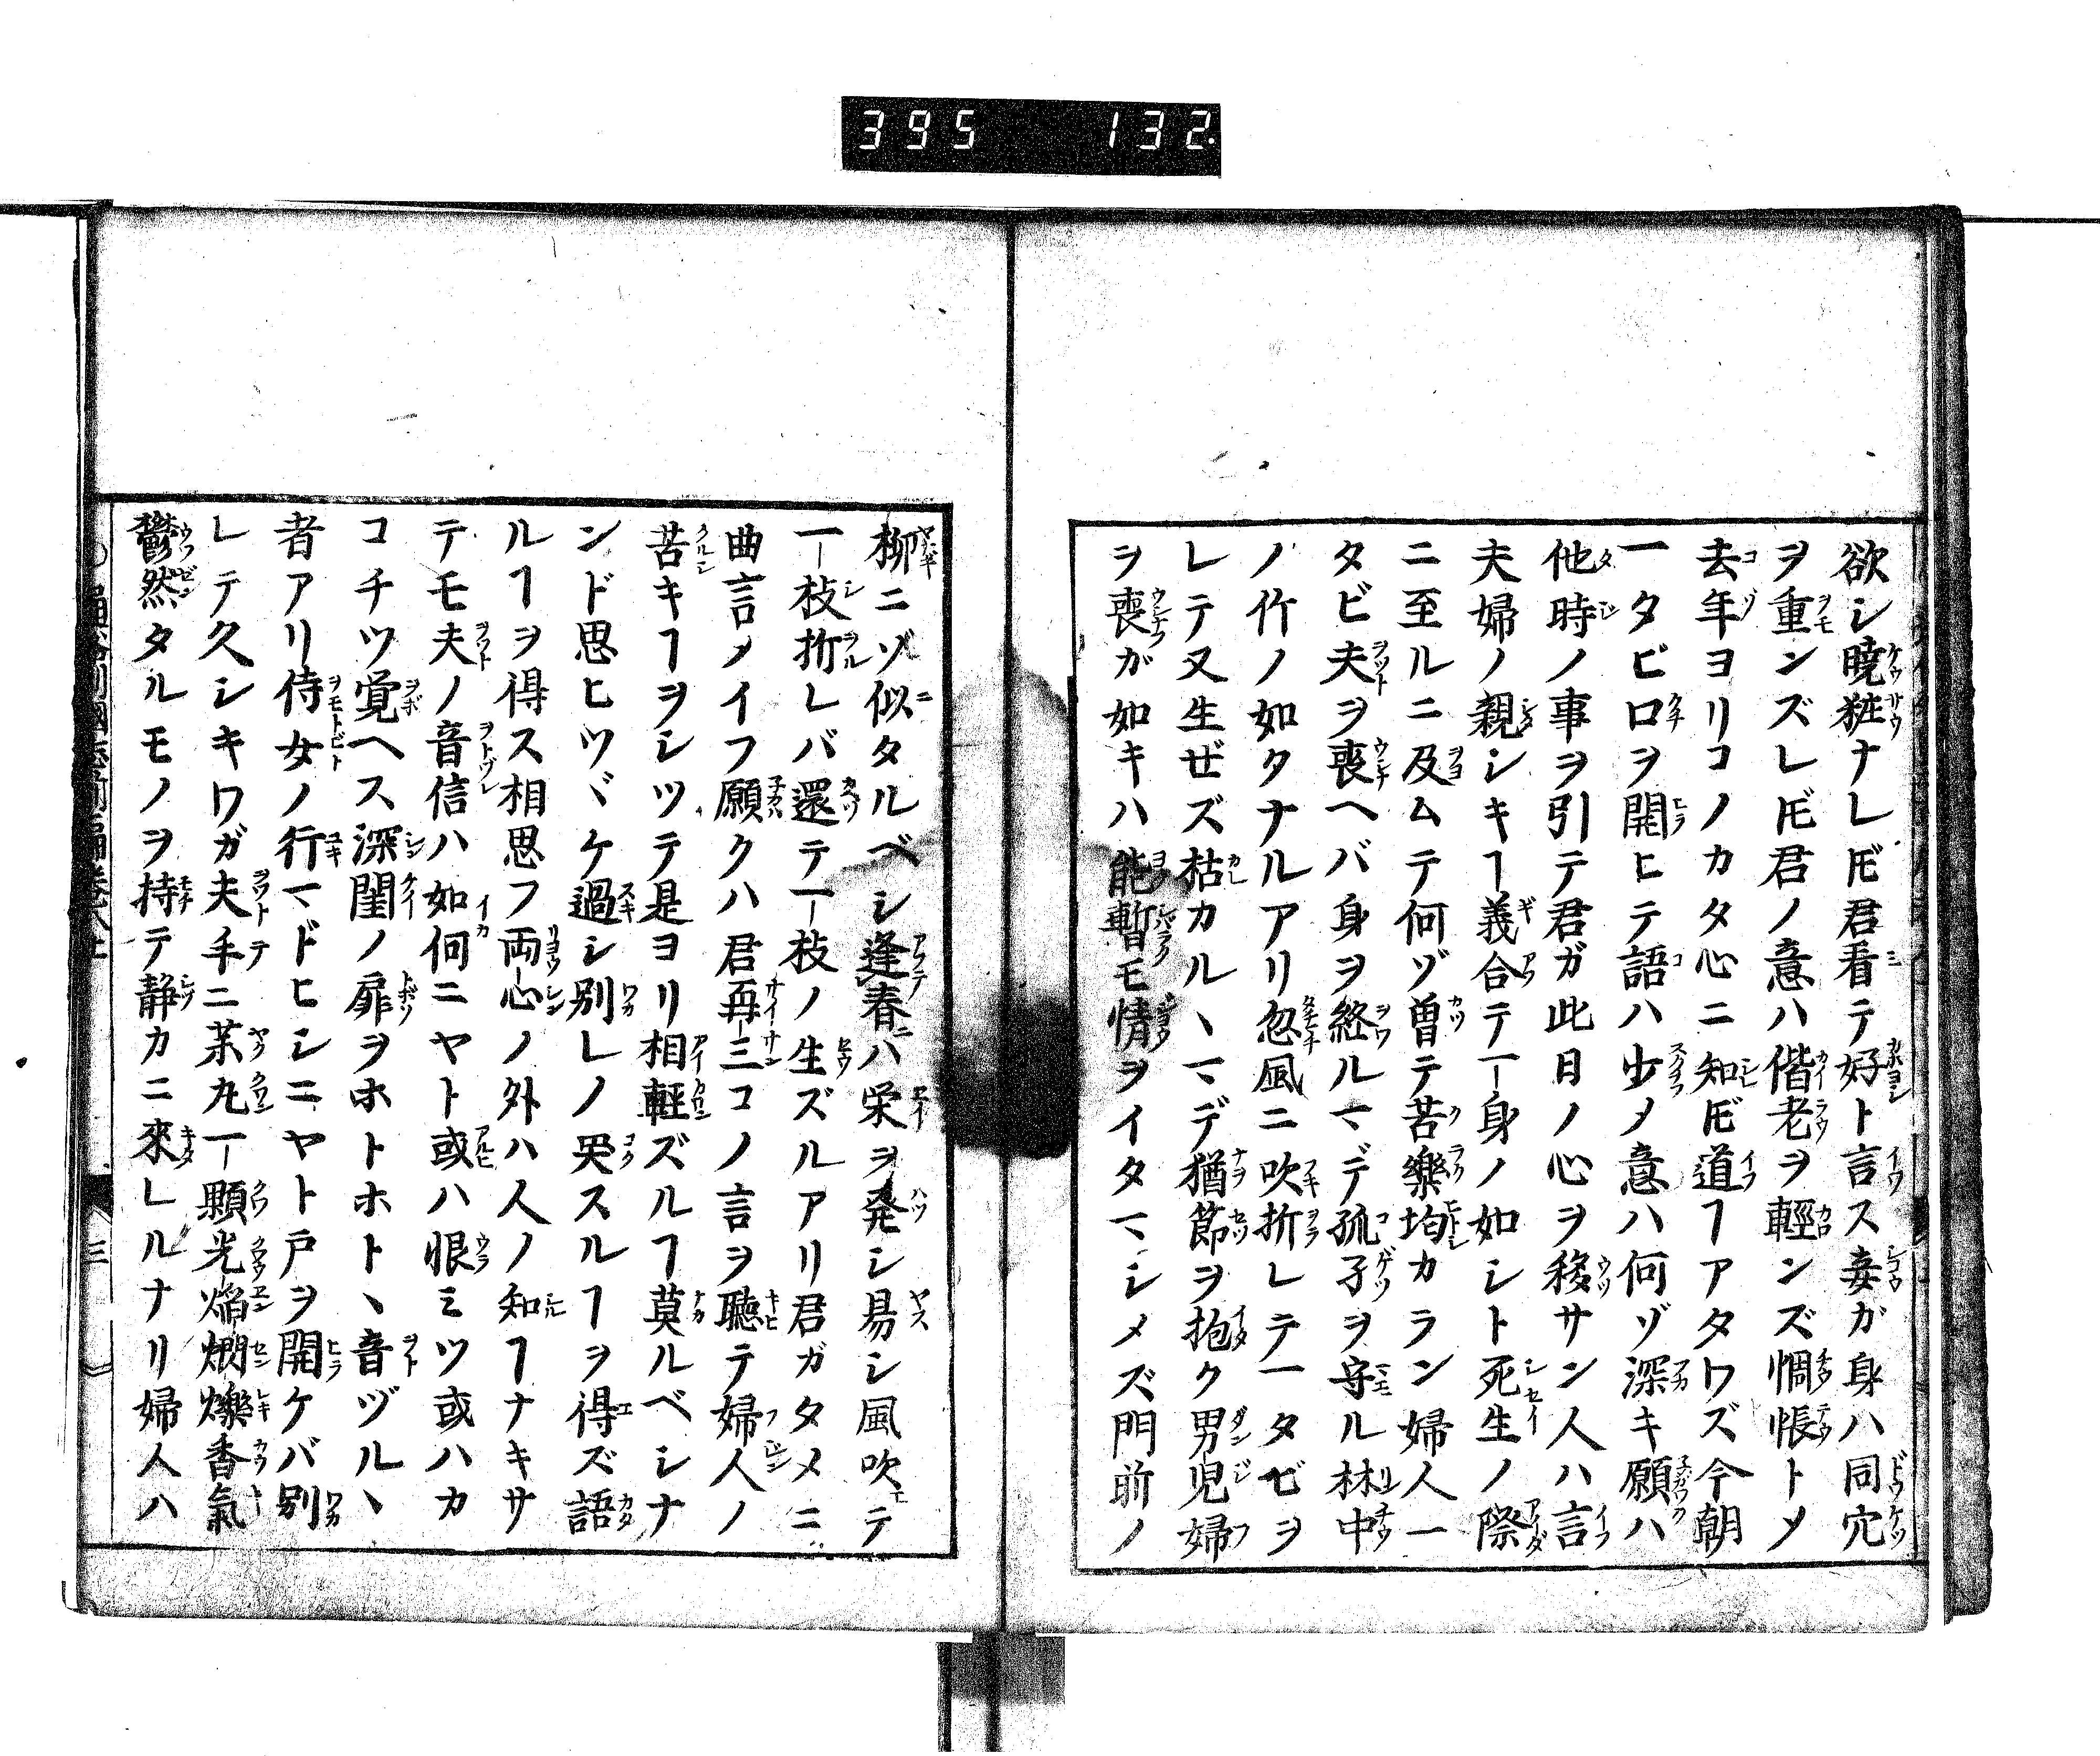 395 132.
欲シ暁粧ナレ𪜈君看テ好ト言ス妾ガ身ハ同穴
ヲ重ンズレ𪜈君ノ意ハ偕老ヲ輕ンズ惆帳トメ
去年ヨリコノカタ心ニ知𪜈道ヿアタワズ今朝
一タビ口ヲ開ヒテ語ハ少メ意ハ何ゾ深キ願ハ
他時ノ事ヲ引テ君ガ此日ノ心ヲ移サン人ハ言
夫婦ノ親シキヿ義合テ一身ノ如シト死生ノ際
ニ至ルニ及ムテ何ゾ曽テ苦樂均カラン婦人一
タビ夫ヲ喪ヘバ身ヲ終ルマデ孤孑ヲ守ル林中
ノ竹ノ如クナルアリ忽風ニ吹折レテ一タビヲ
レテ又生ゼズ枯カルヽマデ猶節ヲ抱ク男児婦
ヲ喪ガ如キハ能暫モ情ヲイタマシメズ門前ノ
柳ニゾ似タルベシ逢春ニハ栄ヲ発シ易シ風吹テ
一枝折レバ還テ一枝ノ生ズルアリ君ガタメニ
曲言メイフ願クハ君再三コノ言ヲ聴テ婦人ノ
苦キヿヲシツテ是ヨリ相輕ズルヿ莫ルベシナ
ンド思ヒツヾケ過シ別レノ哭スルヿヲ得ズ語
ルヿヲ得ス相思フ両心ノ外ハ人ノ知ヿナキサ
テモ夫ノ音信ハ如何ニヤト或ハ恨ミツ或ハカ
コチツ覚ヘス深閨ノ扉ヲホトホトヽ音ヅルヽ
者アリ侍女ノ行マドヒシニヤト戸ヲ開ケバ別
レテ久シキワガ夫手ニ茶丸一顆光焔爓爍香氣
鬱然タルモノヲ持テ静カニ來レルナリ婦人ハ
三